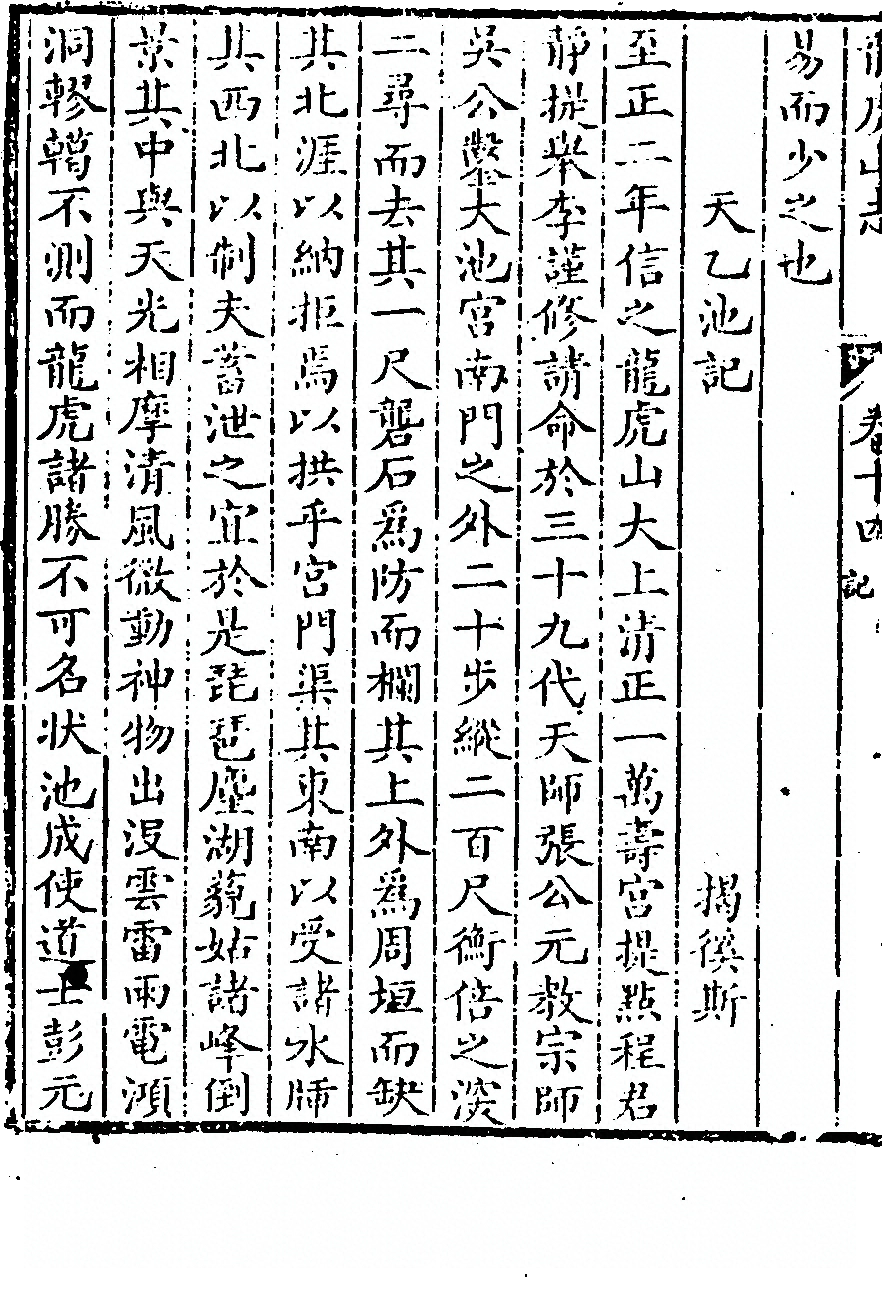 龍虎山志 卷十四 記
易而少之也
天乙池記 揭徯斯
至正二年信之龍虎山大上清正一萬壽宮提點程君
靜提舉李謹修請命於三十九代天師張公元教宗師
吳公鑿大池宮南門之外二十步縱二百尺衡倍之深
二尋而去其一尺礱石爲防而欄其上外爲周垣而缺
其北涯以納拒焉以拱乎宮門渠其東南以受諸水牐
其西北以制夫蓄泄之宜於是琵琶塵湖藐姑諸峰倒
景其中與天光相摩清風微動神物出沒雲雷雨電澒
洞轇轕不測而龍虎諸勝不可名狀池成使道士彭元